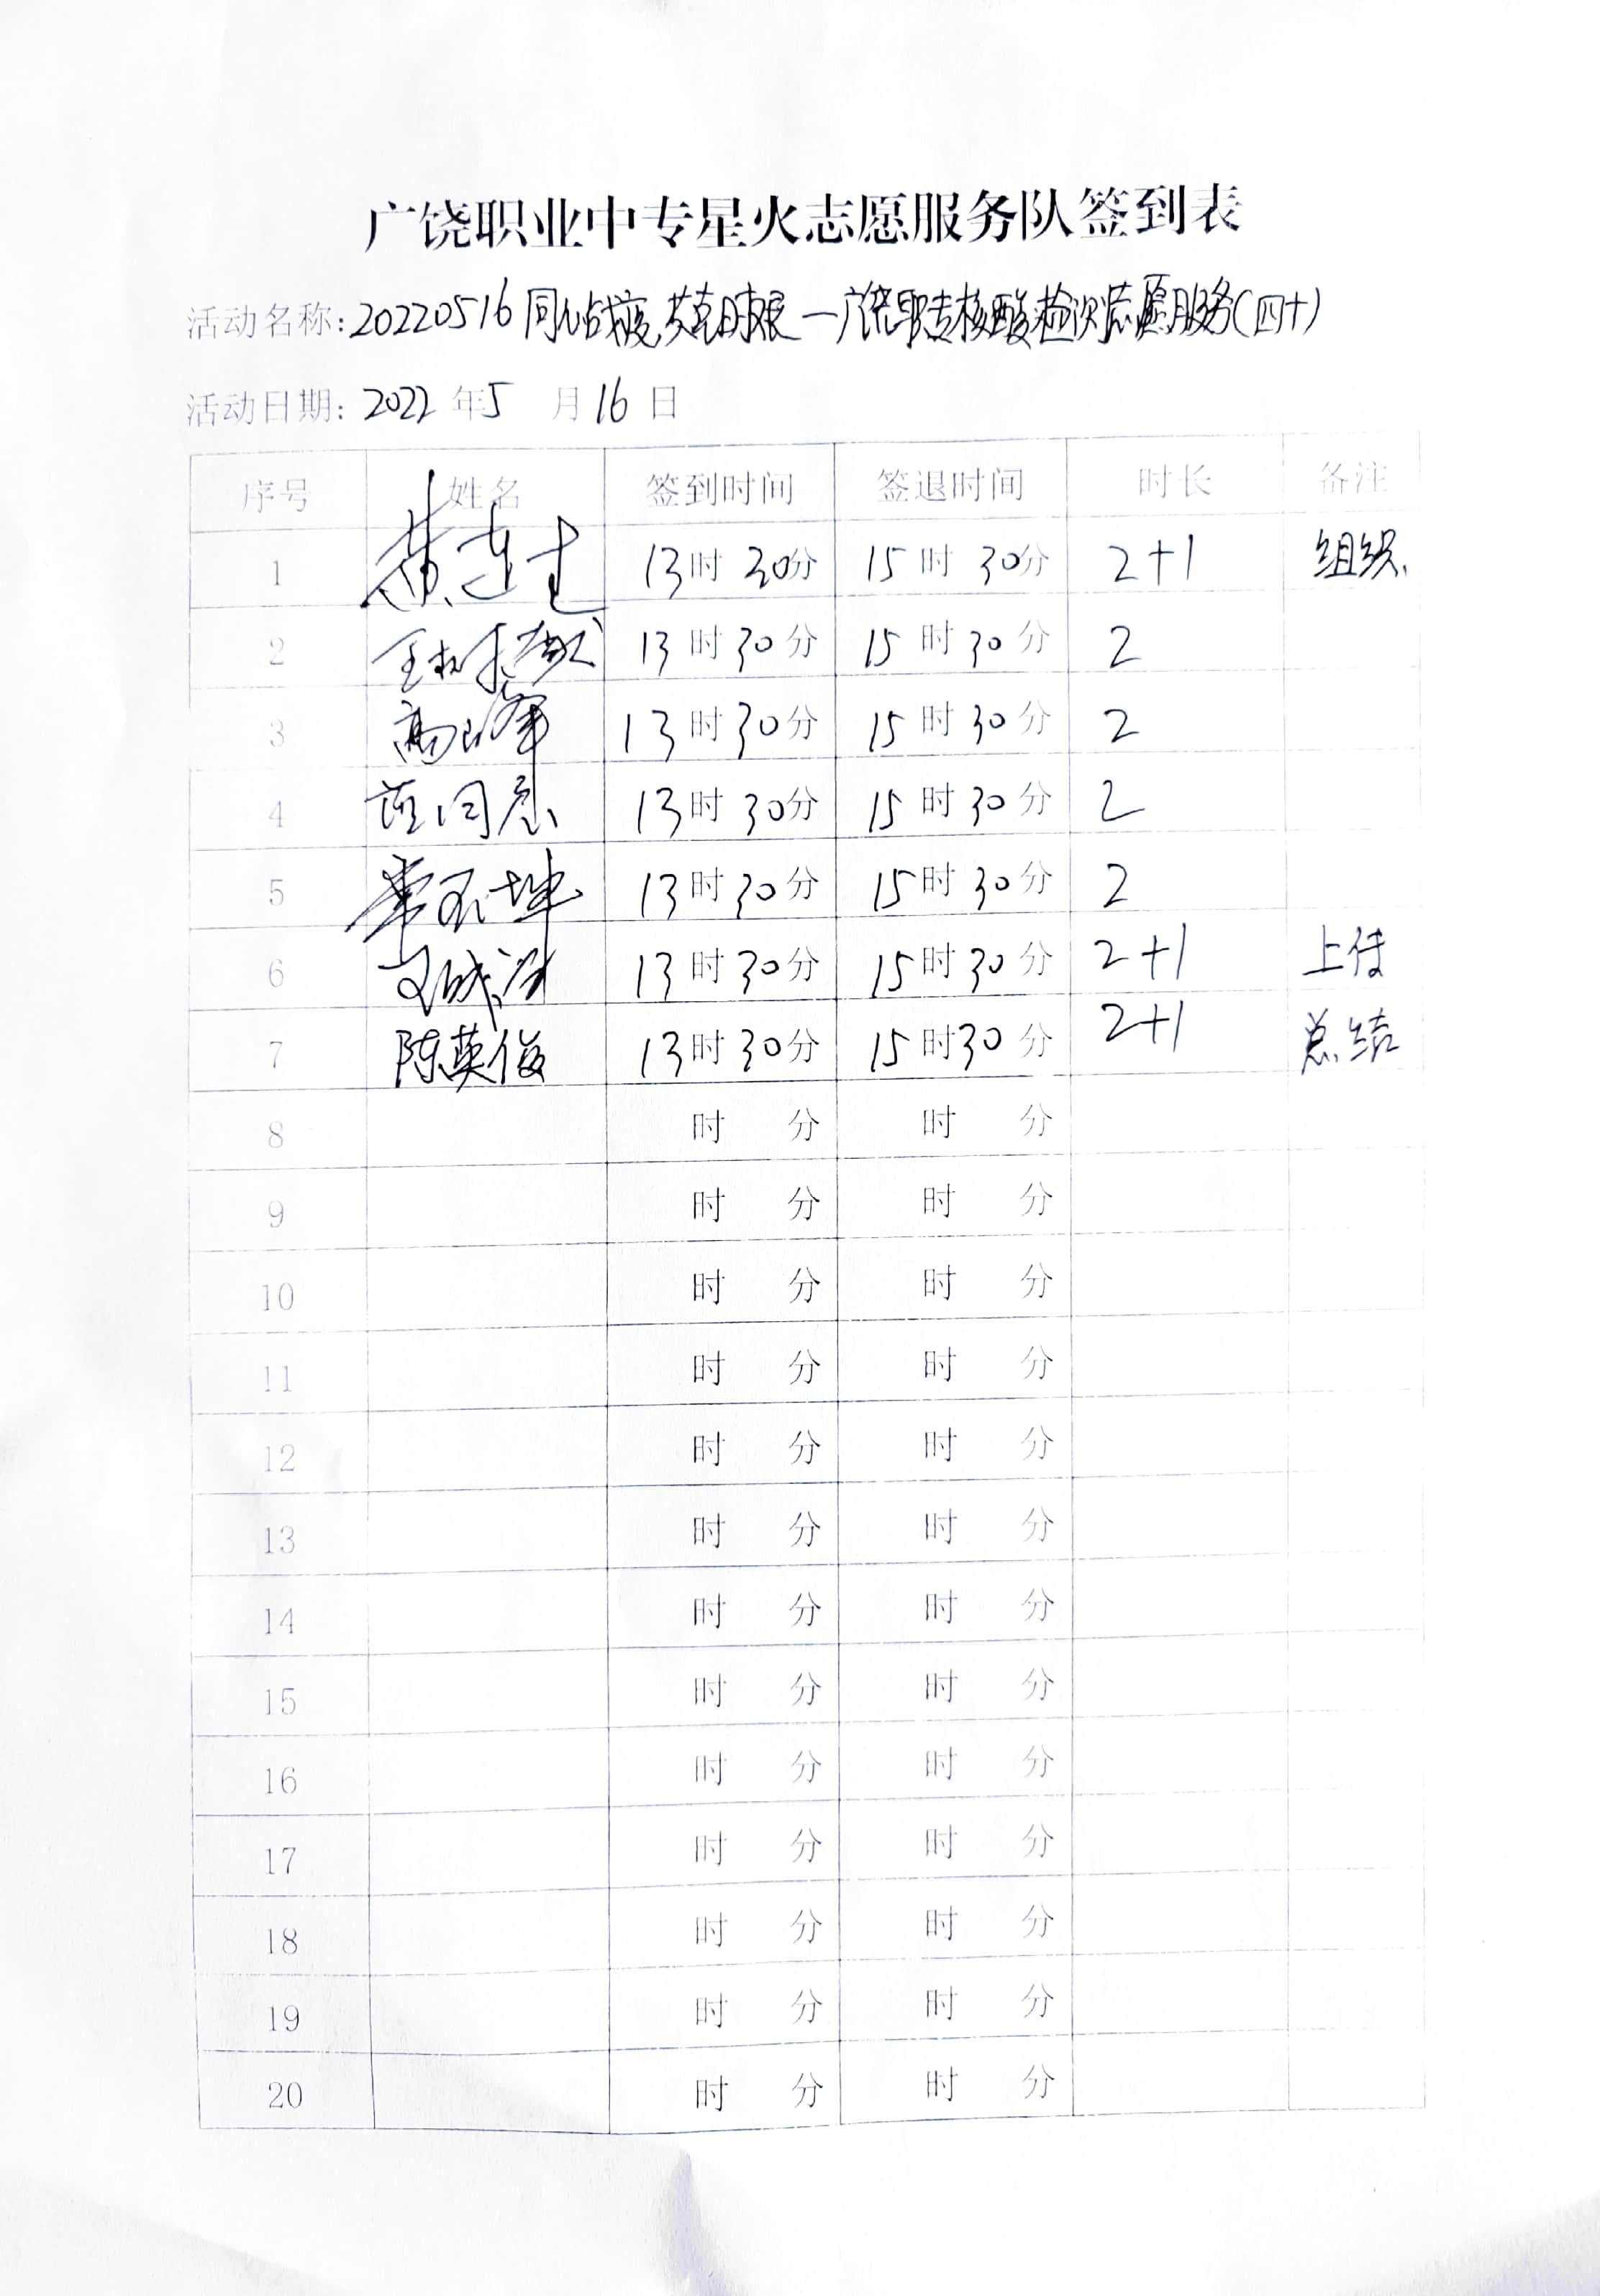 广饶职业中专星火志愿服务队签到表
活动名称:20220516同心战疫,共克时艰一广饶职专核酸检测志愿服务(四十)
活动日期: 2022 年 5 月 16 日
序号 姓名 签到时间 签退时间 时长 备注
1 13时30分 15时30分 2+1 组织
2 13时30分 15时30分 2
3 13时30分 15时30分 2
4 13时30分 15时30分 2
5 常玉坤 13时30分 15时30分 2
6 13时30分 15时30分 2+1 上传
7 陈英俊 13时30分 15时30分 2+1 总结
8 时 分 时 分
9 时 分 时 分
10 时 分 时 分
11 时 分 时 分
12 时 分 时 分
13 时 分 时 分
14 时 分 时 分
15 时 分 时 分
16 时 分 时 分
17 时 分 时 分
18 时 分 时 分
19 时 分 时 分
20 时 分 时 分